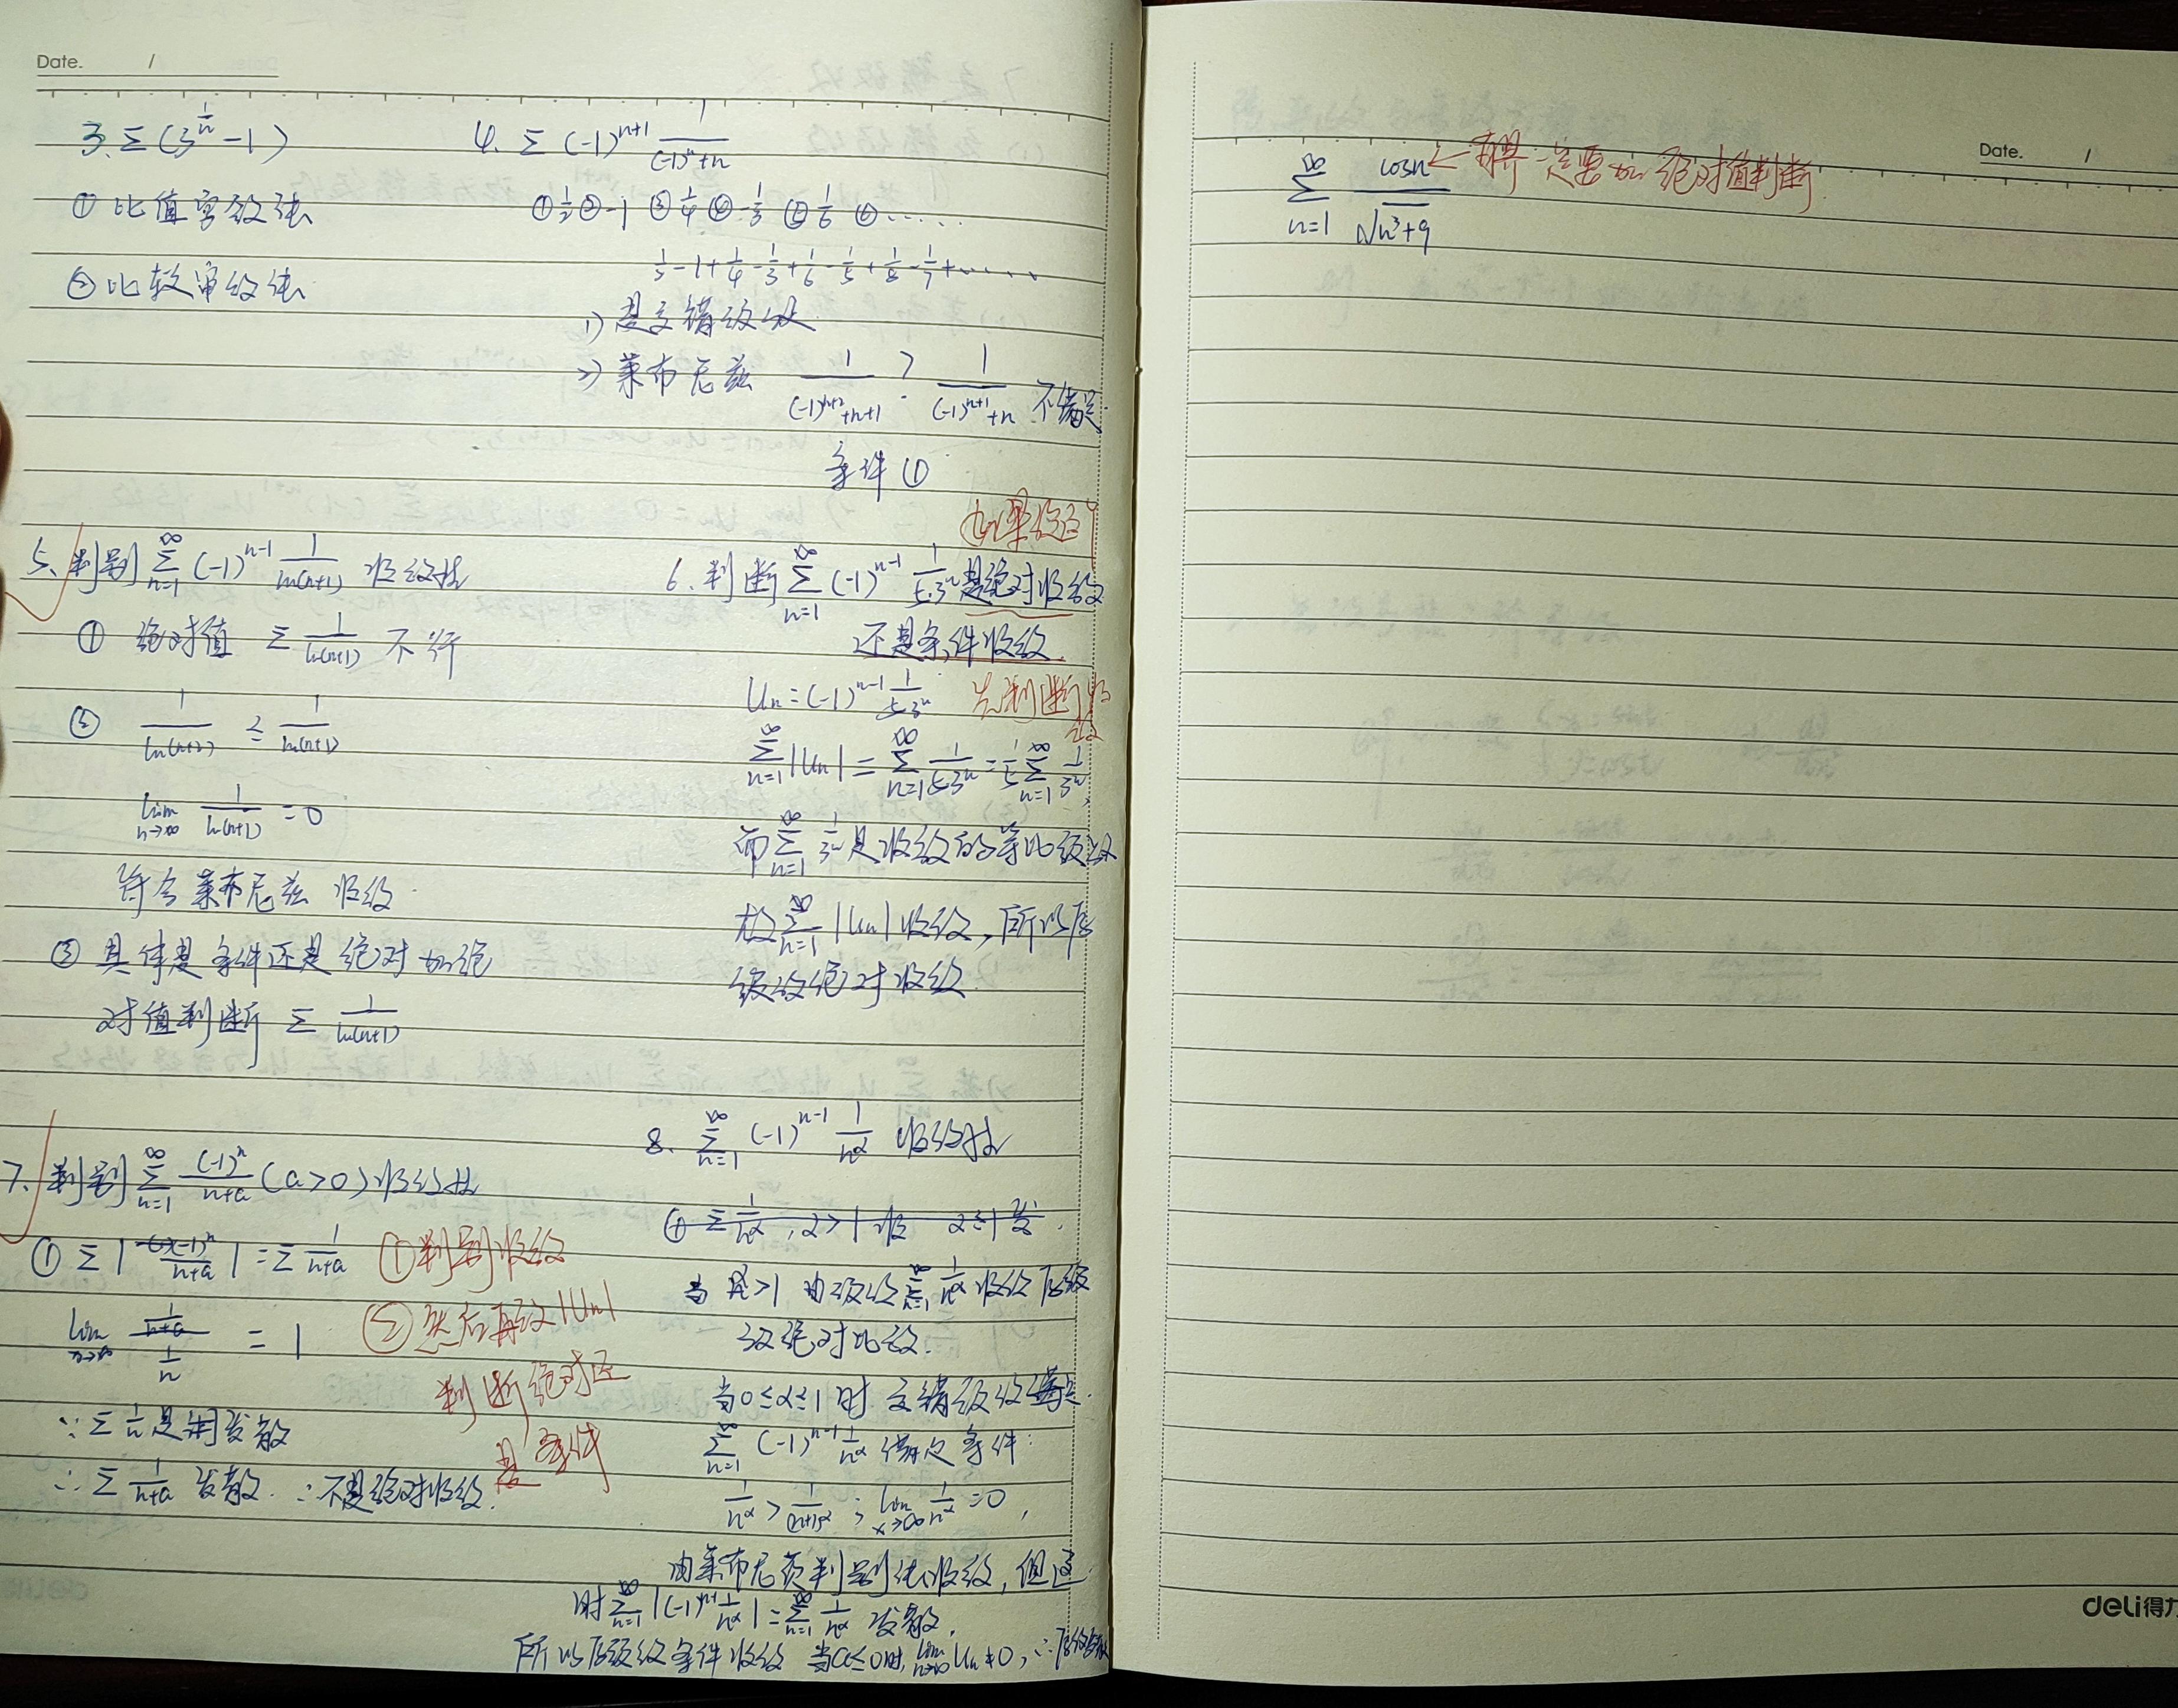 Date. /
3. Σ(3^{1/n} - 1)
① 比值审敛法
② 比较审敛法
4. Σ(-1)^{n+1} 1/((-1)^n+n)
½ - 1 + ¼ - ⅓ + 1/6 - 1/5 + 1/8 - 1/7 + ……
1) 是交错级数
2) 莱布尼兹 1/((-1)^{n+2}+n+1) > 1/((-1)^{n+1}+n) 不满足
条件①
5. 判别 Σ_{n=1}^∞ (-1)^{n-1} 1/ln(n+1) 收敛性
① 绝对值 Σ 1/ln(n+1) 不行
② 1/ln(n+2) ≤ 1/ln(n+1)
lim_{n→∞} 1/ln(n+1) = 0
符合莱布尼兹 收敛
③ 具体是条件还是绝对 加绝
对值判断 Σ 1/ln(n+1)
6. 判断 Σ_{n=1}^∞ (-1)^{n-1} 1/(5·3^n) 是绝对收敛
还是条件收敛
U_n = (-1)^{n-1} 1/(5·3^n)
先判断
Σ_{n=1}^∞ |U_n| = Σ_{n=1}^∞ 1/(5·3^n) = 1/5 Σ_{n=1}^∞ 1/3^n,
而 Σ_{n=1}^∞ 1/3^n 是收敛的等比级数
故 Σ_{n=1}^∞ |U_n| 收敛, 所以原
级数绝对收敛
7. 判别 Σ_{n=1}^∞ (-1)^n/(n+a) (a>0) 收敛性
① Σ|(-1)^n/(n+a)| = Σ 1/(n+a)
lim_{n→∞} (1/(n+a))/(1/n) = 1
∵ Σ 1/n 是 发散
∴ Σ 1/(n+a) 发散. ∴ 不是绝对收敛.
① 判别收敛
② 然后再敛|U_n|
判断绝对还
是条件
8. Σ_{n=1}^∞ (-1)^{n-1} 1/n^α 收敛性
① Σ 1/n^α, α>1 收 α≤1 发.
当 α>1 由级数 Σ_{n=1}^∞ 1/n^α 收敛 原级
数绝对收敛.
当 0≤α≤1 时 交错级数
Σ_{n=1}^∞ (-1)^{n-1} 1/n^α 满足条件:
1/n^α > 1/(n+1)^α ; lim_{x→∞} 1/n^α = 0,
由莱布尼茨判别法收敛, 但这
时 Σ_{n=1}^∞ |(-1)^{n+1} 1/n^α| = Σ_{n=1}^∞ 1/n^α 发散,
所以原级数条件收敛 当α≤0时, lim_{n→∞} U_n ≠ 0, ∴ 原级数发散
Date. /
Σ_{n=1}^∞ cosn/√(n³+9) ← 一定要加绝对值判断
deli得力